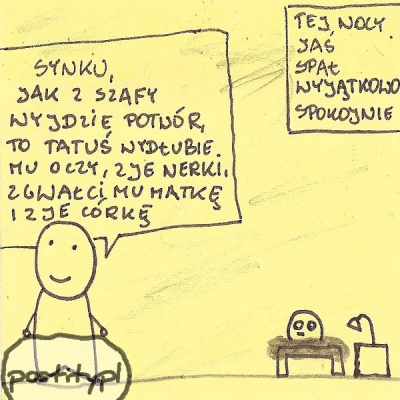 SYNKU,
JAK Z SZAFY
WYJDZIE POTWÓR,
TO TATUŚ WYDŁUBIE
MU OCZY, ZJE NERKI,
ZGWAŁCI MU MATKĘ
I ZJE CÓRKĘ
TEJ NOCY
JAŚ
SPAŁ
WYJĄTKOWO
SPOKOJNIE
postitypl